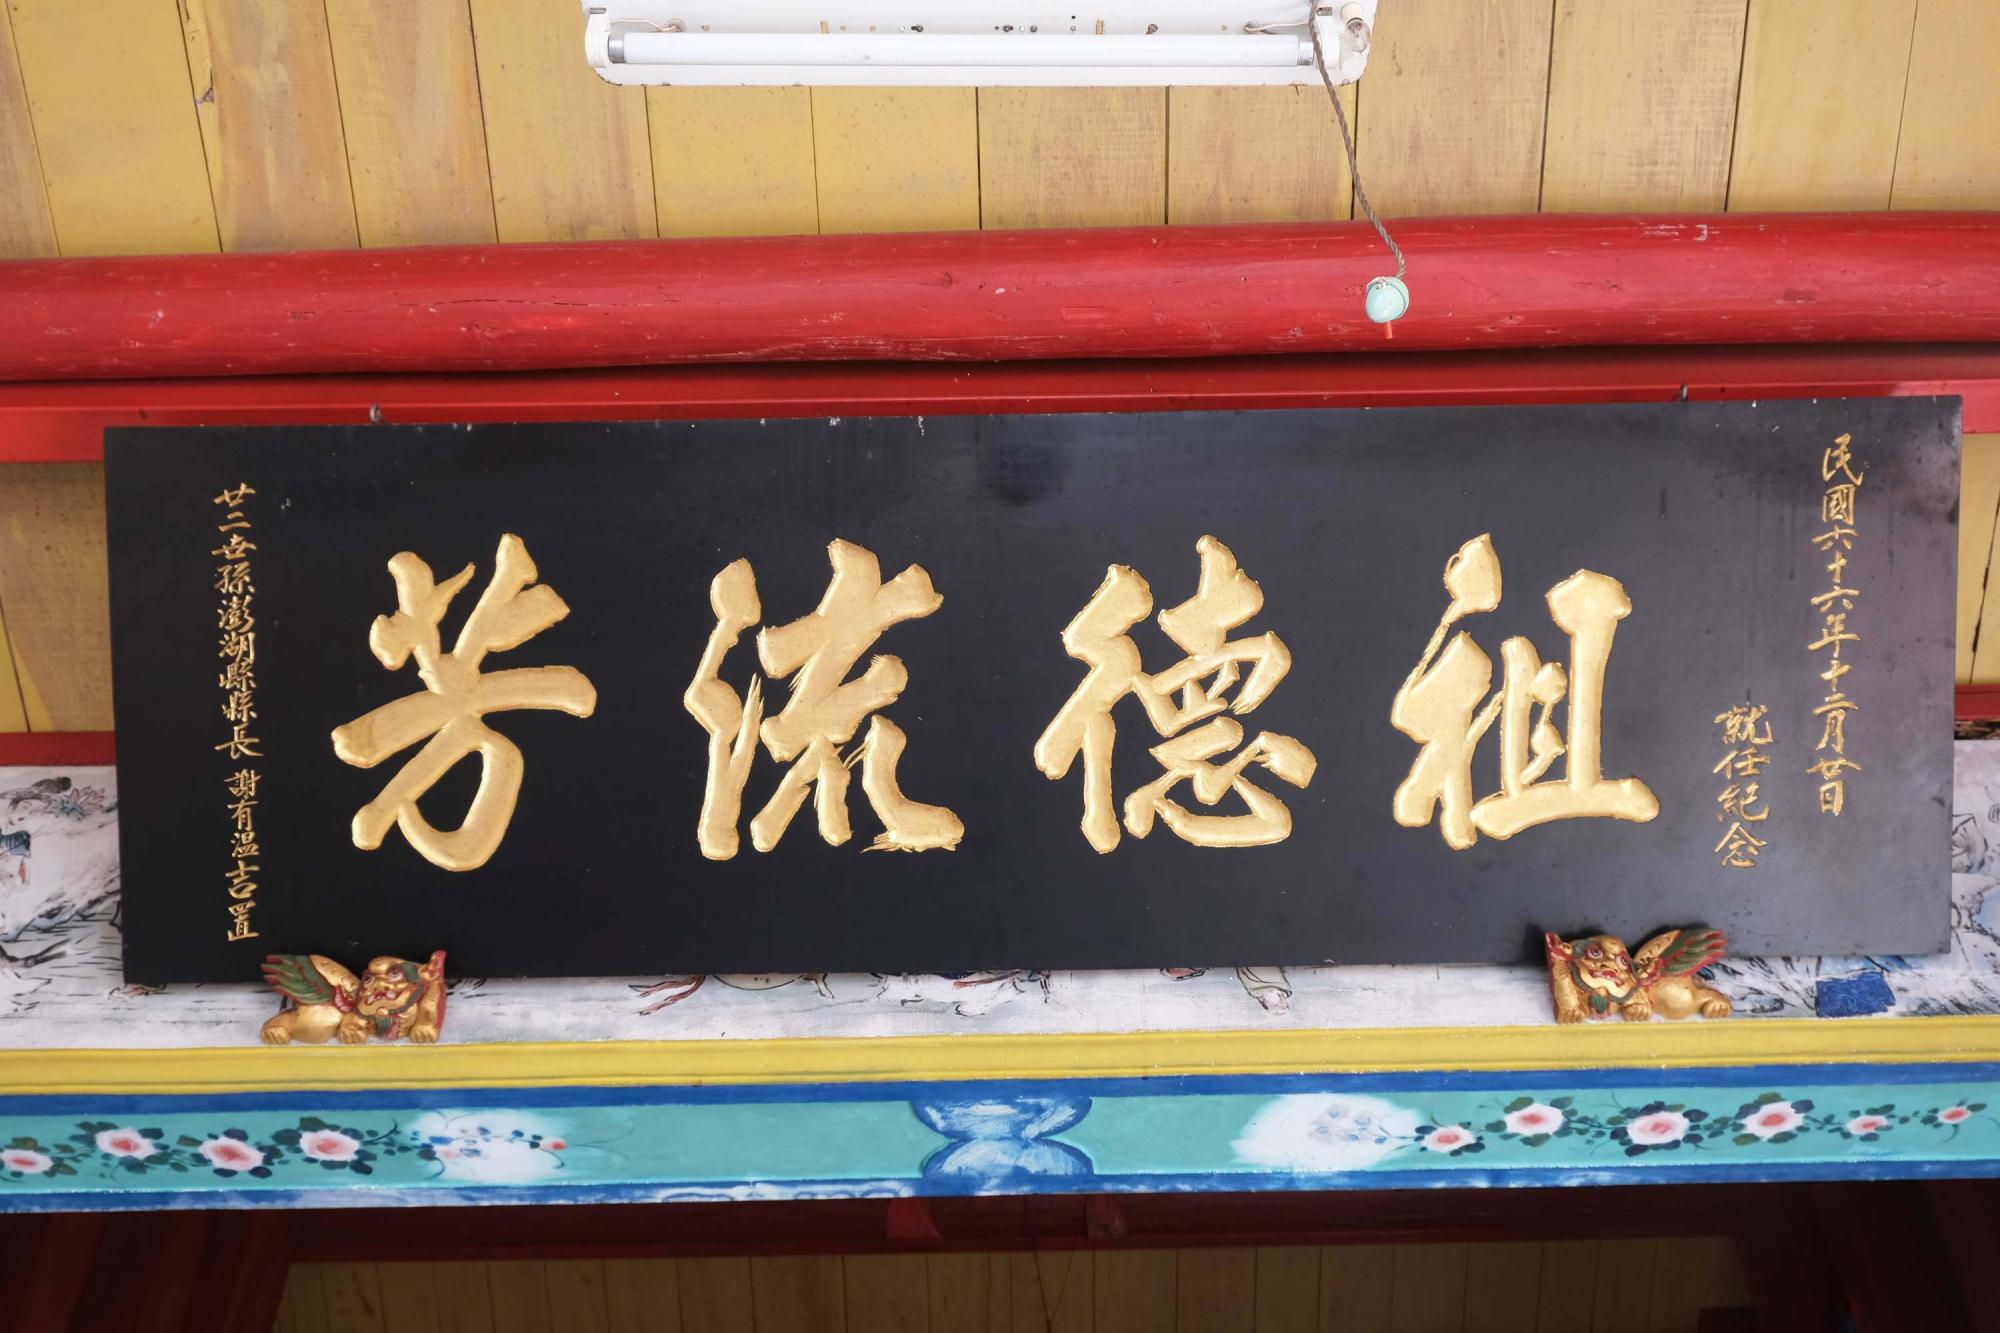 民國六十六年十二月廿日
就任紀念
祖德流芳
廿二世孫澎湖縣縣長 謝有溫吉置